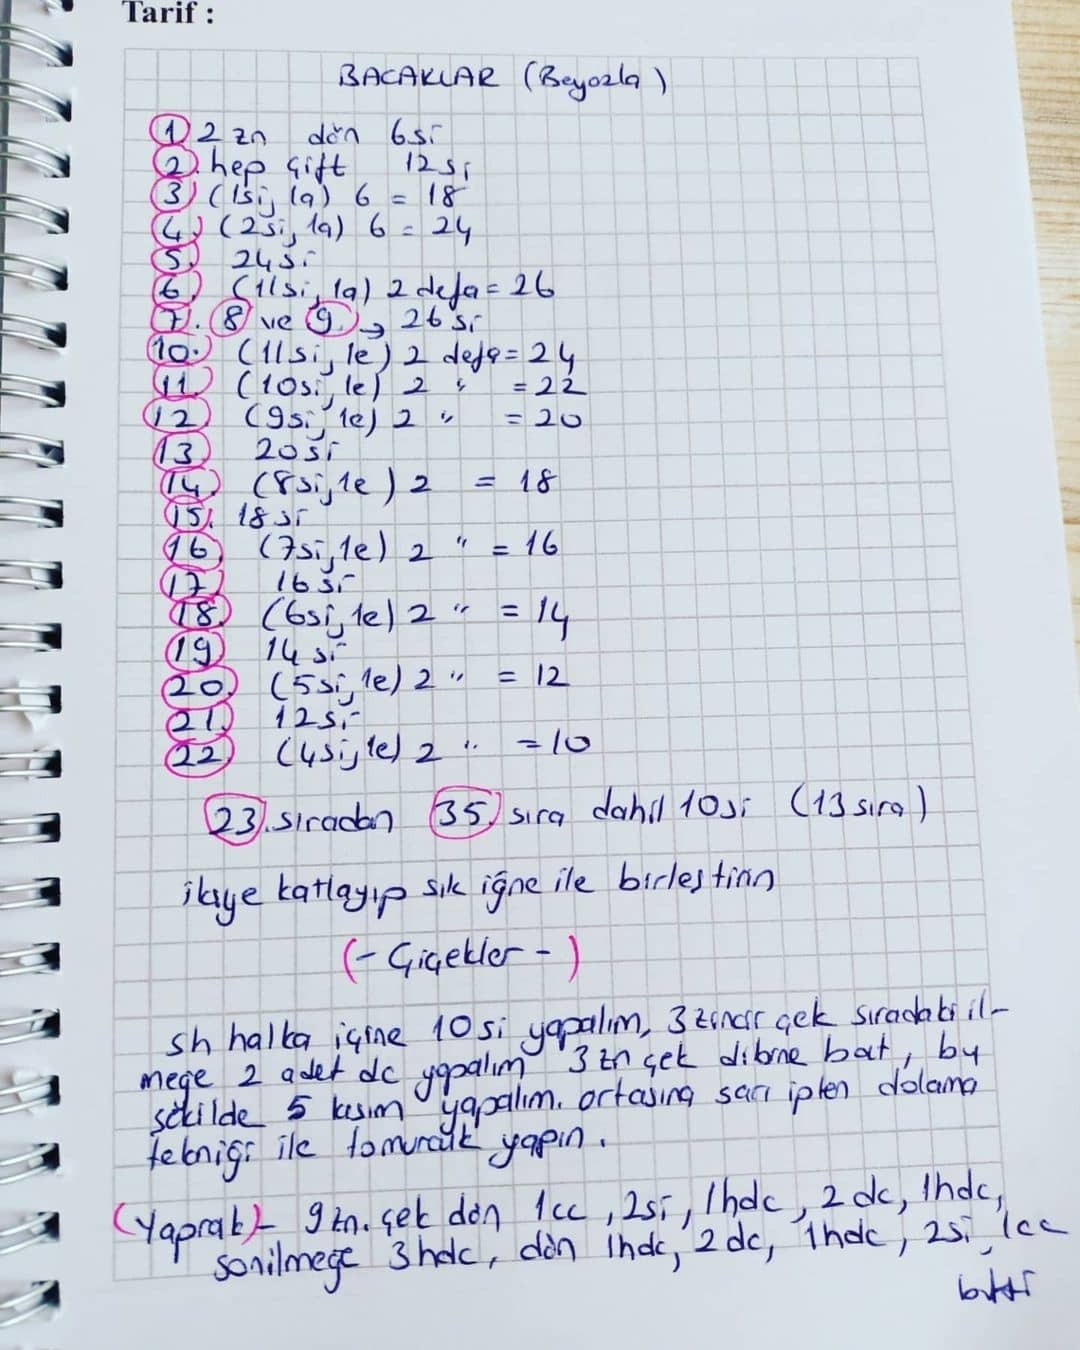 Tarif :
BACAKLAR (Beyazla)
1) 2 zn dön 6si
2). hep çift 12si
3) (1si, 1a) 6 = 18
4) (2si, 1a) 6 = 24
5. 24si
6) (11si, 1a) 2 defa = 26
7. 8 ve 9. → 26 si
10. (11si, 1e) 2 defa = 24
11 (10si, 1e) 2 " = 22
12 (9si, 1e) 2 " = 20
13) 20si
14) (8si, 1e) 2 = 18
15. 18 si
16 (7si, 1e) 2 " = 16
17) 16 si
18. (6si, 1e) 2 " = 14
19) 14 si
20) (5si, 1e) 2 " = 12
21) 12si
22) (4si, 1e) 2 " = 10
23. sıradan 35. sıra dahil 10si (13 sıra)
ikiye katlayıp sık iğne ile birleştirin
(- Çiçekler -)
sh halka içine 10si yapalım, 3 zincir çek sıradaki il-
meğe 2 adet dc yapalım 3 zn çek dibine bat, bu
şekilde 5 kısım yapalım. ortasına sarı ipten dolama
tekniği ile tomurcuk yapın.
(Yaprak)- 9 zn. çek dön 1cc, 2si, 1hdc, 2 dc, 1hdc,
son ilmeğe 3 hdc, dön 1hdc, 2 dc, 1hdc, 2si, 1cc
bitti